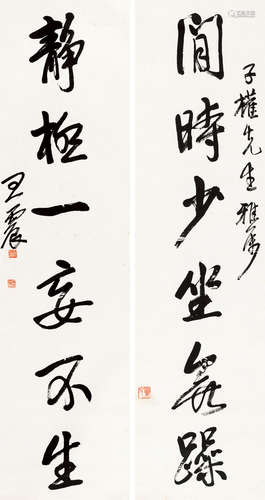 子權先生雅屬
閒時少坐躁
靜極一妄不生
王震